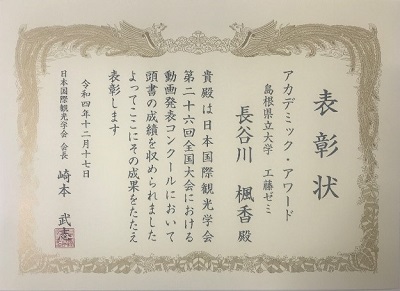 表彰状
アカデミック・アワード
島根県立大学 工藤ゼミ
長谷川 楓香 殿
貴殿は日本国際観光学会
第二十六回全国大会における
動画発表コンクールにおいて
頭書の成績を収められました
よってここにその成果をたたえ
表彰します
令和四年十二月十七日
日本国際観光学会 会長 崎本 武志